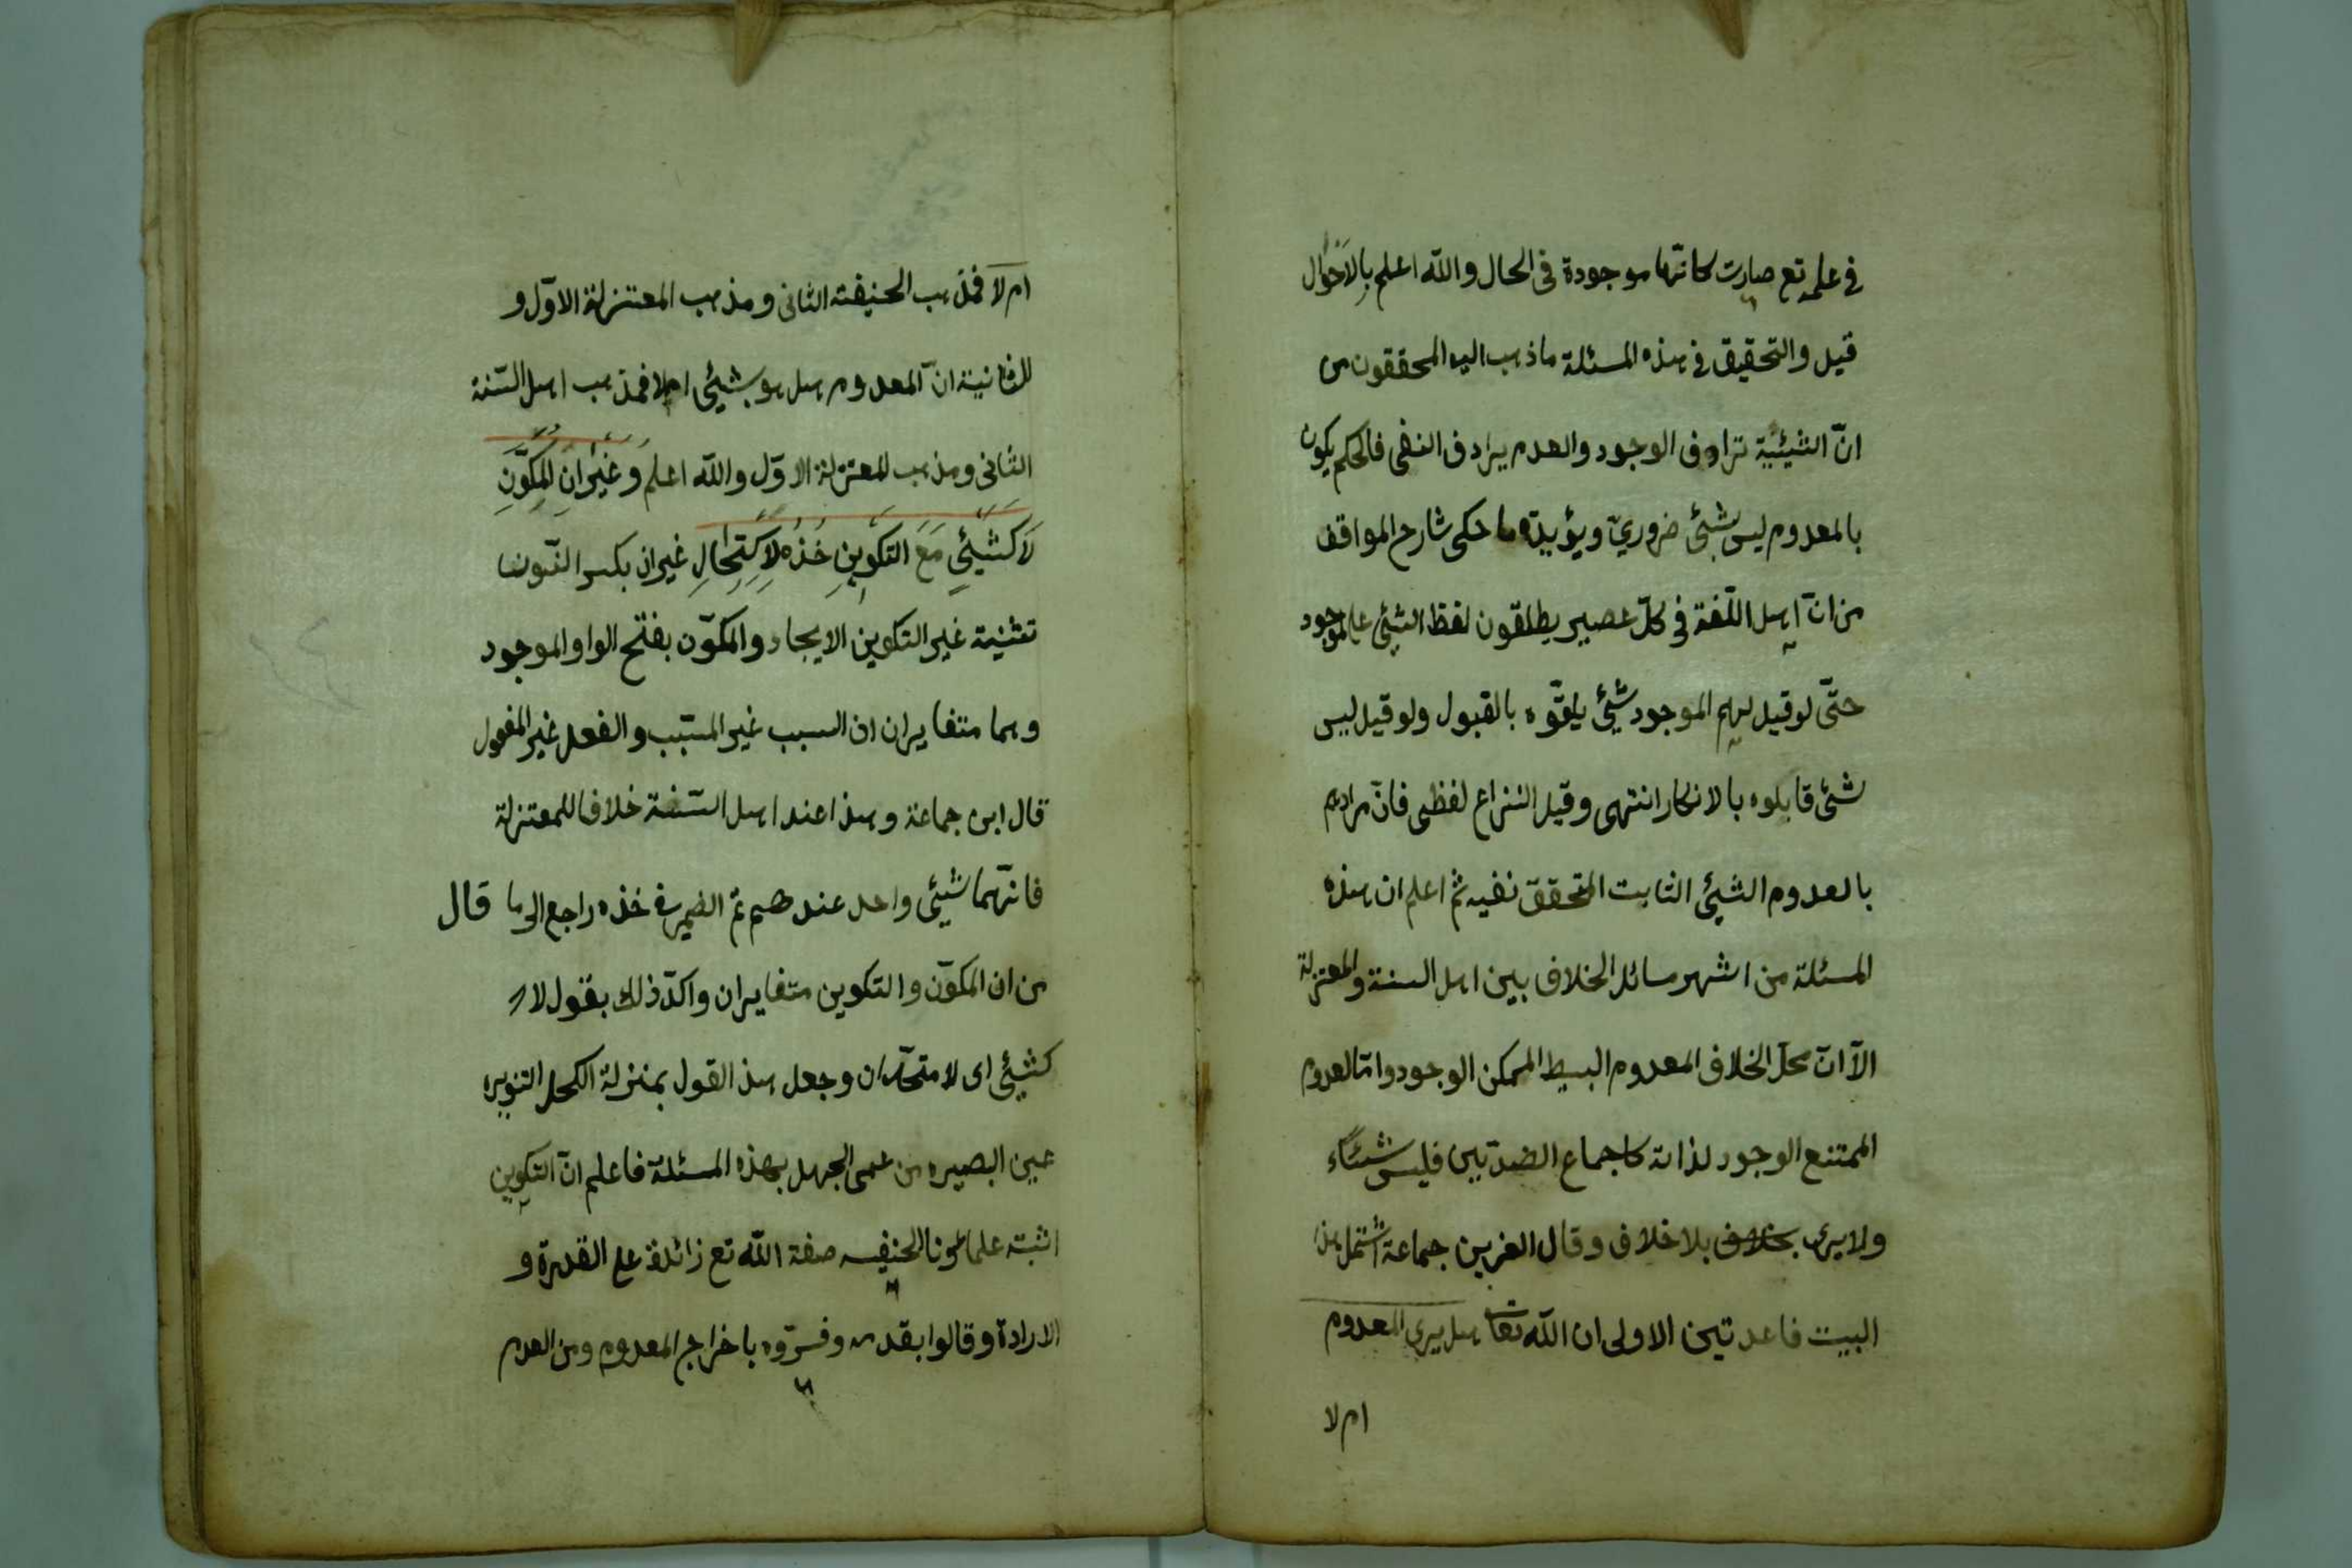 في علمه تع صارت كانّها موجودة في الحال والله اعلم بالاحوال
قيل والتحقيق في هذه المسئلة ما ذهب اليه المحققون من
انّ الشيئيّة ترادف الوجود والعدم يرادف النفى فالحكم يكون
بالمعدوم ليس بشئ ضروريّ ويؤيدّه ما حكى شارح المواقف
من انّ اهل اللّغة في كلّ عصر يطلقون لفظ الشئ على الموجود
حتّى لو قيل لهم الموجود شئ يلقّوه بالقبول ولو قيل ليس
شئ قابلوه بالانكار انتهى وقيل النزاع لفظى فانّ مرادهم
بالعدوم الشئ الثابت المتحقق نفيه ثم اعلم ان هذه
المسئلة من اشهر مسائل الخلاف بين اهل السنة والمعتزلة
الّا انّ محلّ الخلاف المعدوم البسيط الممكن الوجود وامّا المعدوم
الممتنع الوجود لذاته كاجماع الضدّين فليس شئاء
ولا يرى بلا خلاف وقال العزبن جماعة اشتمل هذا
البيت قاعدتين الاولى ان الله تعا هل يرى المعدوم
ام لا
ام لا فمذهب الحنيفة الثانى ومذهب المعتزلة الاوّل و
للثانية انّ المعدوم هل هو بشئ املا فمذهب اهل السّنة
الثانى ومذهب المعتزلة الاوّل والله اعلم وَغَيْرَانِ الْمُكَوَّنِ
لَا كَشَيْئٍ مَعَ التَّكْوِينِ خُذْهُ لِاكْتِحَالِ غيران بكسر النّون
تثنية غير التكوين الايجاد والمكوّن بفتح الواو الموجود
وهما متغايران ان السبب غير المسّبب والفعل غير المفعول
قال ابن جماعة وهذا عند اهل السّنة خلافا للمعتزلة
فانّهما شئ واحد عندهم ثمّ الضمير في خذه راجع الى ما قال
من ان المكوّن والتكوين متغايران واكدّ ذلك بقول لا
كشئ اى لا متحّدان وجعل هذ القول بمنزلة الكحل التنويره
عين البصيره من عمى الجهل بهذه المسئلة فاعلم انّ التكوين
اثبته علماؤنا الحنيفيه صفة الله تع زائدة على القدرة و
الارادة وقالوا بقدمه وفسرّوه باخراج المعدوم ومن العدم